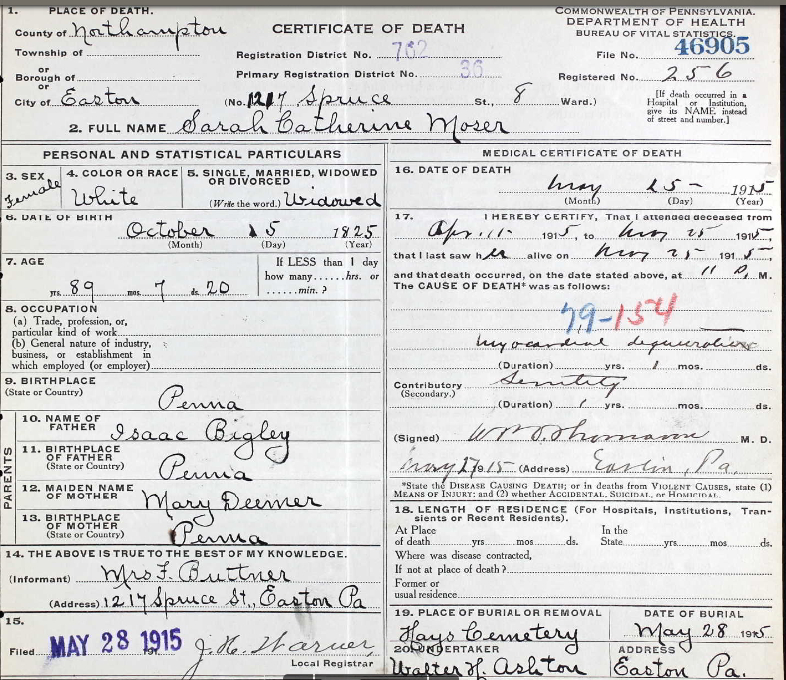 1. PLACE OF DEATH.
County of Northampton
Township of
or
Borough of
or
City of Easton
CERTIFICATE OF DEATH
Registration District No. 762
Primary Registration District No. 36
(No. 1217 Spruce St., 8 Ward.)
COMMONWEALTH OF PENNSYLVANIA.
DEPARTMENT OF HEALTH
BUREAU OF VITAL STATISTICS.
File No. 46905
Registered No. 256
[If death occurred in a
Hospital or Institution,
give its NAME instead
of street and number.]
2. FULL NAME Sarah Catherine Moser
PERSONAL AND STATISTICAL PARTICULARS
3. SEX
Female
4. COLOR OR RACE
White
5. SINGLE, MARRIED, WIDOWED
OR DIVORCED
(Write the word.) Widowed
6. DATE OF BIRTH
October 5 1825
(Month) (Day) (Year)
7. AGE
yrs. 89 mos. 7 ds. 20
If LESS than 1 day
how many......hrs. or
......min. ?
8. OCCUPATION
(a) Trade, profession, or,
particular kind of work
(b) General nature of industry,
business, or establishment in
which employed (or employer)
9. BIRTHPLACE
(State or Country)
Penna
PARENTS
10. NAME OF
FATHER
Isaac Bigley
11. BIRTHPLACE
OF FATHER
(State or Country)
Penna
12. MAIDEN NAME
OF MOTHER
Mary Deemer
13. BIRTHPLACE
OF MOTHER
(State or Country)
Penna
14. THE ABOVE IS TRUE TO THE BEST OF MY KNOWLEDGE.
(Informant) Mrs F. Buttner
(Address) 1217 Spruce St., Easton Pa
15.
Filed MAY 28 1915 J. H. Warner
Local Registrar
MEDICAL CERTIFICATE OF DEATH
16. DATE OF DEATH
May 25 - 1915
(Month) (Day) (Year)
17. I HEREBY CERTIFY, That I attended deceased from
1915, to May 25 1915,
that I last saw her alive on May 25 1915,
and that death occurred, on the date stated above, at 11 M.
The CAUSE OF DEATH* was as follows:
79-154
Myocardial degeneration
(Duration) yrs. mos. ds.
Contributory Senility
(Secondary.)
(Duration) yrs. mos. ds.
(Signed) M. D.
May 27 1915 (Address) Easton, Pa.
*State the DISEASE CAUSING DEATH; or in deaths from VIOLENT CAUSES, state (1)
MEANS OF INJURY; and (2) whether ACCIDENTAL, SUICIDAL, or HOMICIDAL.
18. LENGTH OF RESIDENCE (For Hospitals, Institutions, Tran-
sients or Recent Residents).
At Place In the
of death yrs mos ds. State yrs mos ds.
Where was disease contracted,
If not at place of death ?
Former or
usual residence
19. PLACE OF BURIAL OR REMOVAL
Hays Cemetery
DATE OF BURIAL
May 28 1915
20. UNDERTAKER
Walter H. Ashton
ADDRESS
Easton Pa.